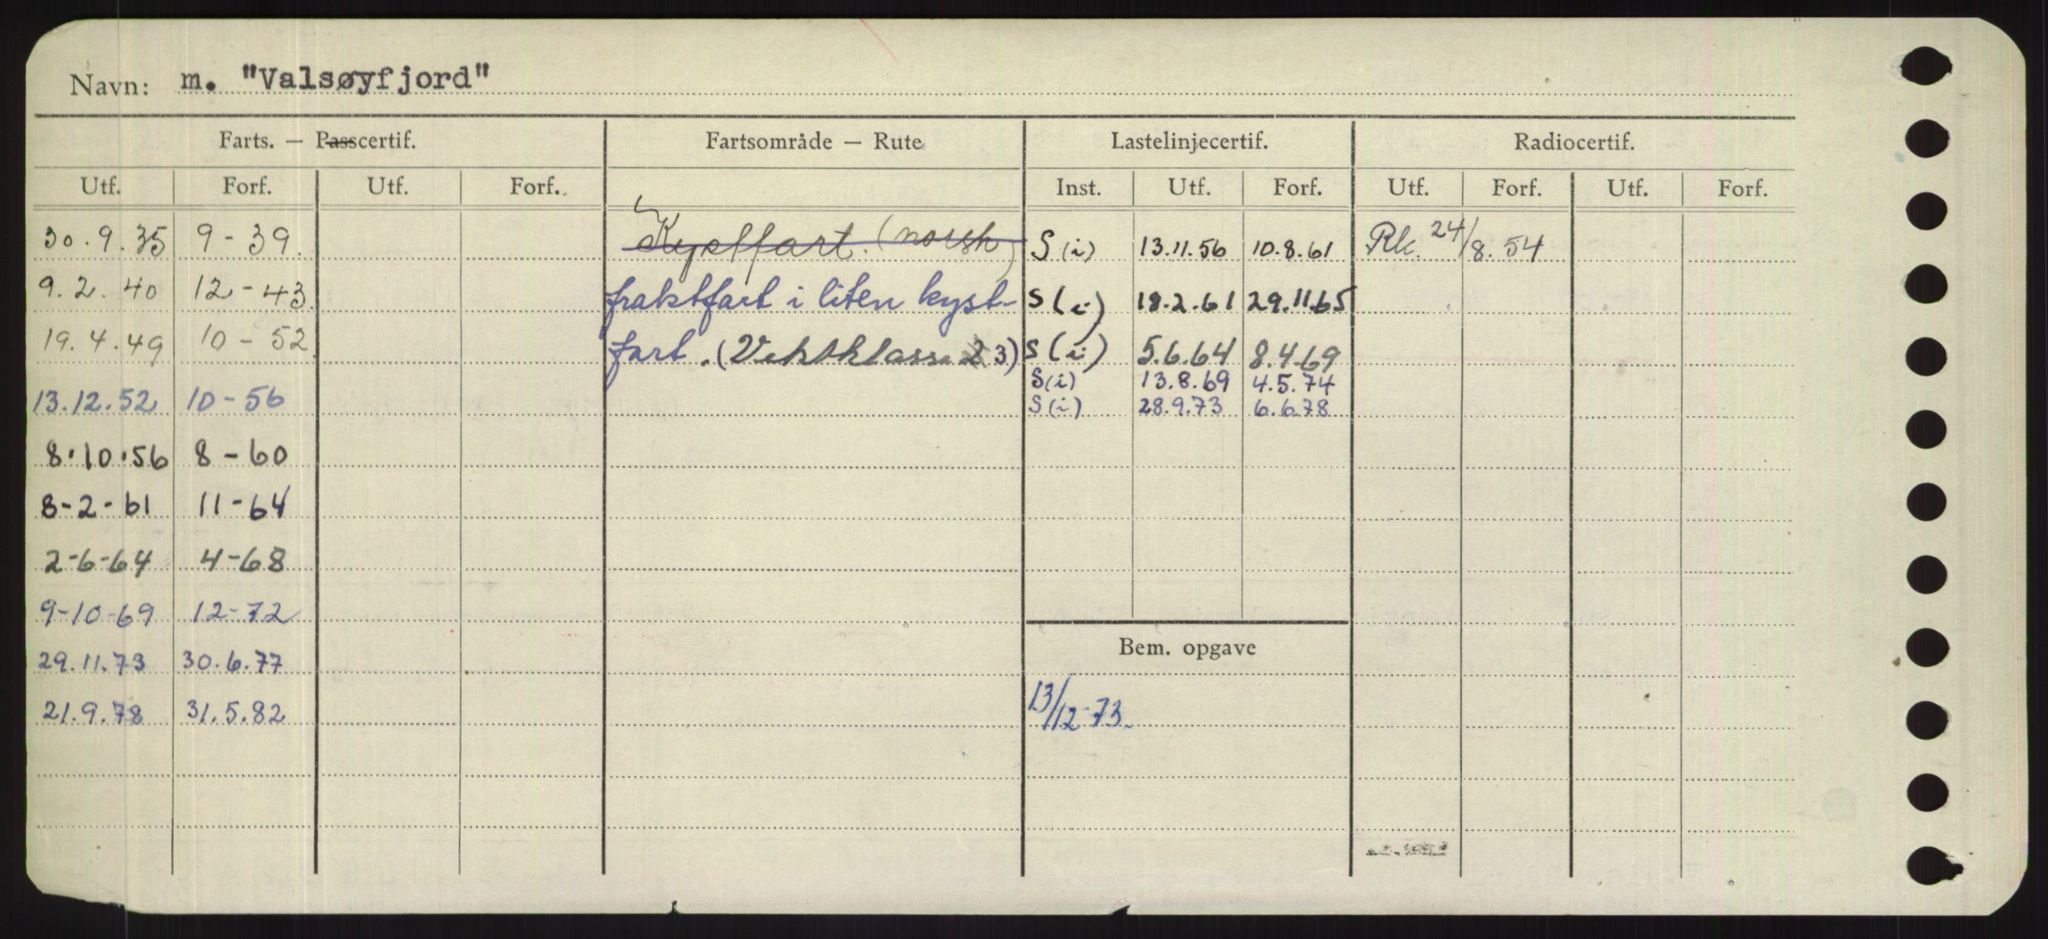 Navn: m. "Valsøyfjord"
Farts. — Passcertif. Fartsområde — Rute Lastelinjecertif. Radiocertif.
Utf. Forf. Utf. Forf. Inst. Utf. Forf. Utf. Forf. Utf. Forf.
30.9.35 9-39. Kystfart. (norsk) S(i) 13.11.56 10.8.61 Rk. 24/8.54
9.2.40 12-43. fraktfart i liten kyst- S(i) 18.2.61 29.11.65
19.4.49 10-52. fart. (Vektklasse 2 3) S(i) 5.6.64 8.4.69
S(i) 13.8.69 4.5.74
13.12.52 10-56 S(i) 28.9.73 6.6.78
8.10.56 8-60
8-2-61 11-64
2-6-64 4-68
9-10-69 12-72
Bem. opgave
29.11.73 30.6.77
21.9.78 31.5.82 13/12-73.